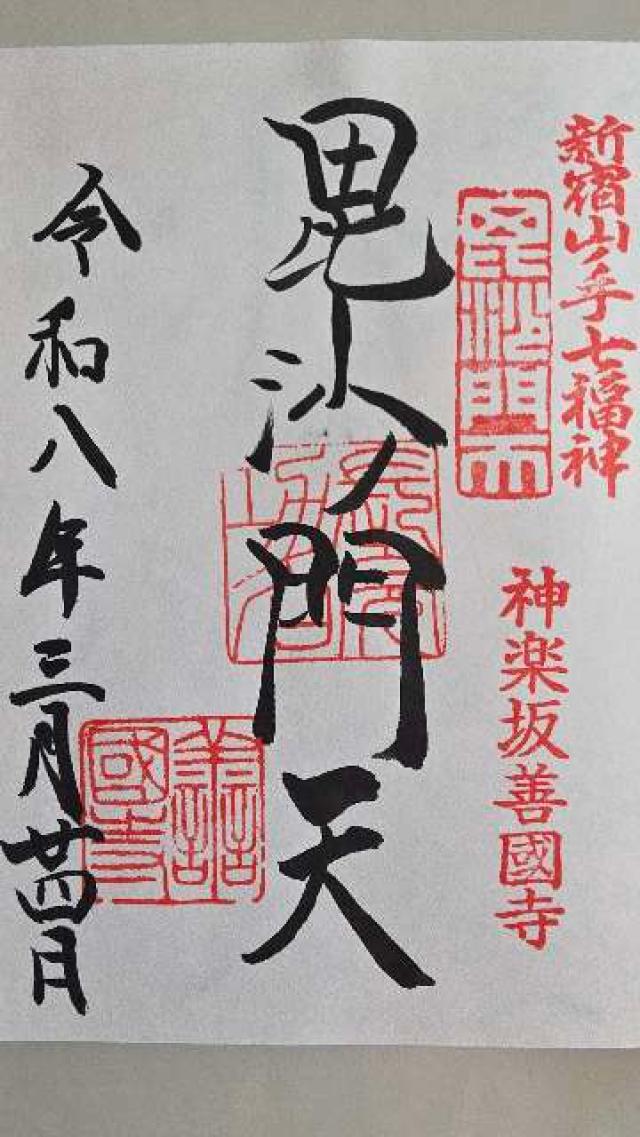 新宿山ノ手七福神
神楽坂善國寺
毘沙門天
毘沙門天
善國寺
令和八年三月廿四日